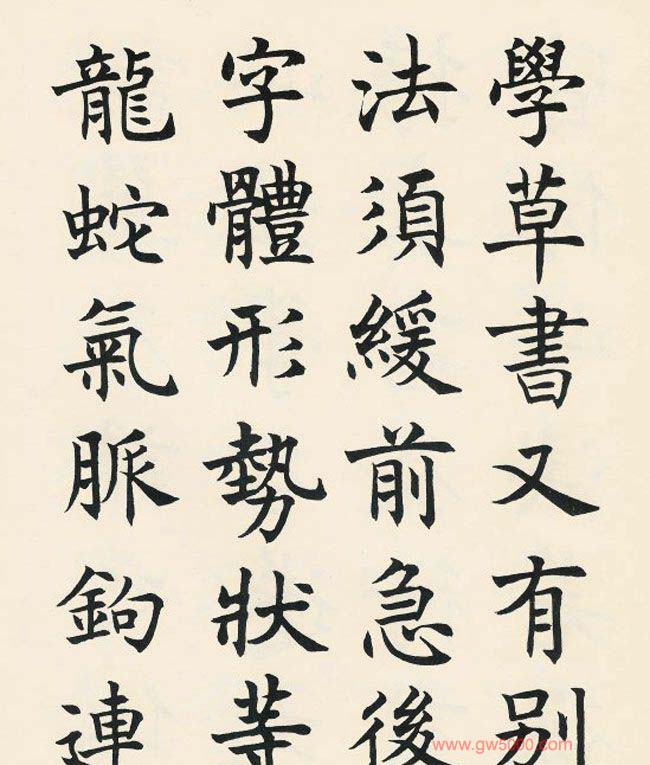 學草書又有别
法須緩前急後
字體形勢狀等
龍蛇氣脈鉤連
www.gw5000.com